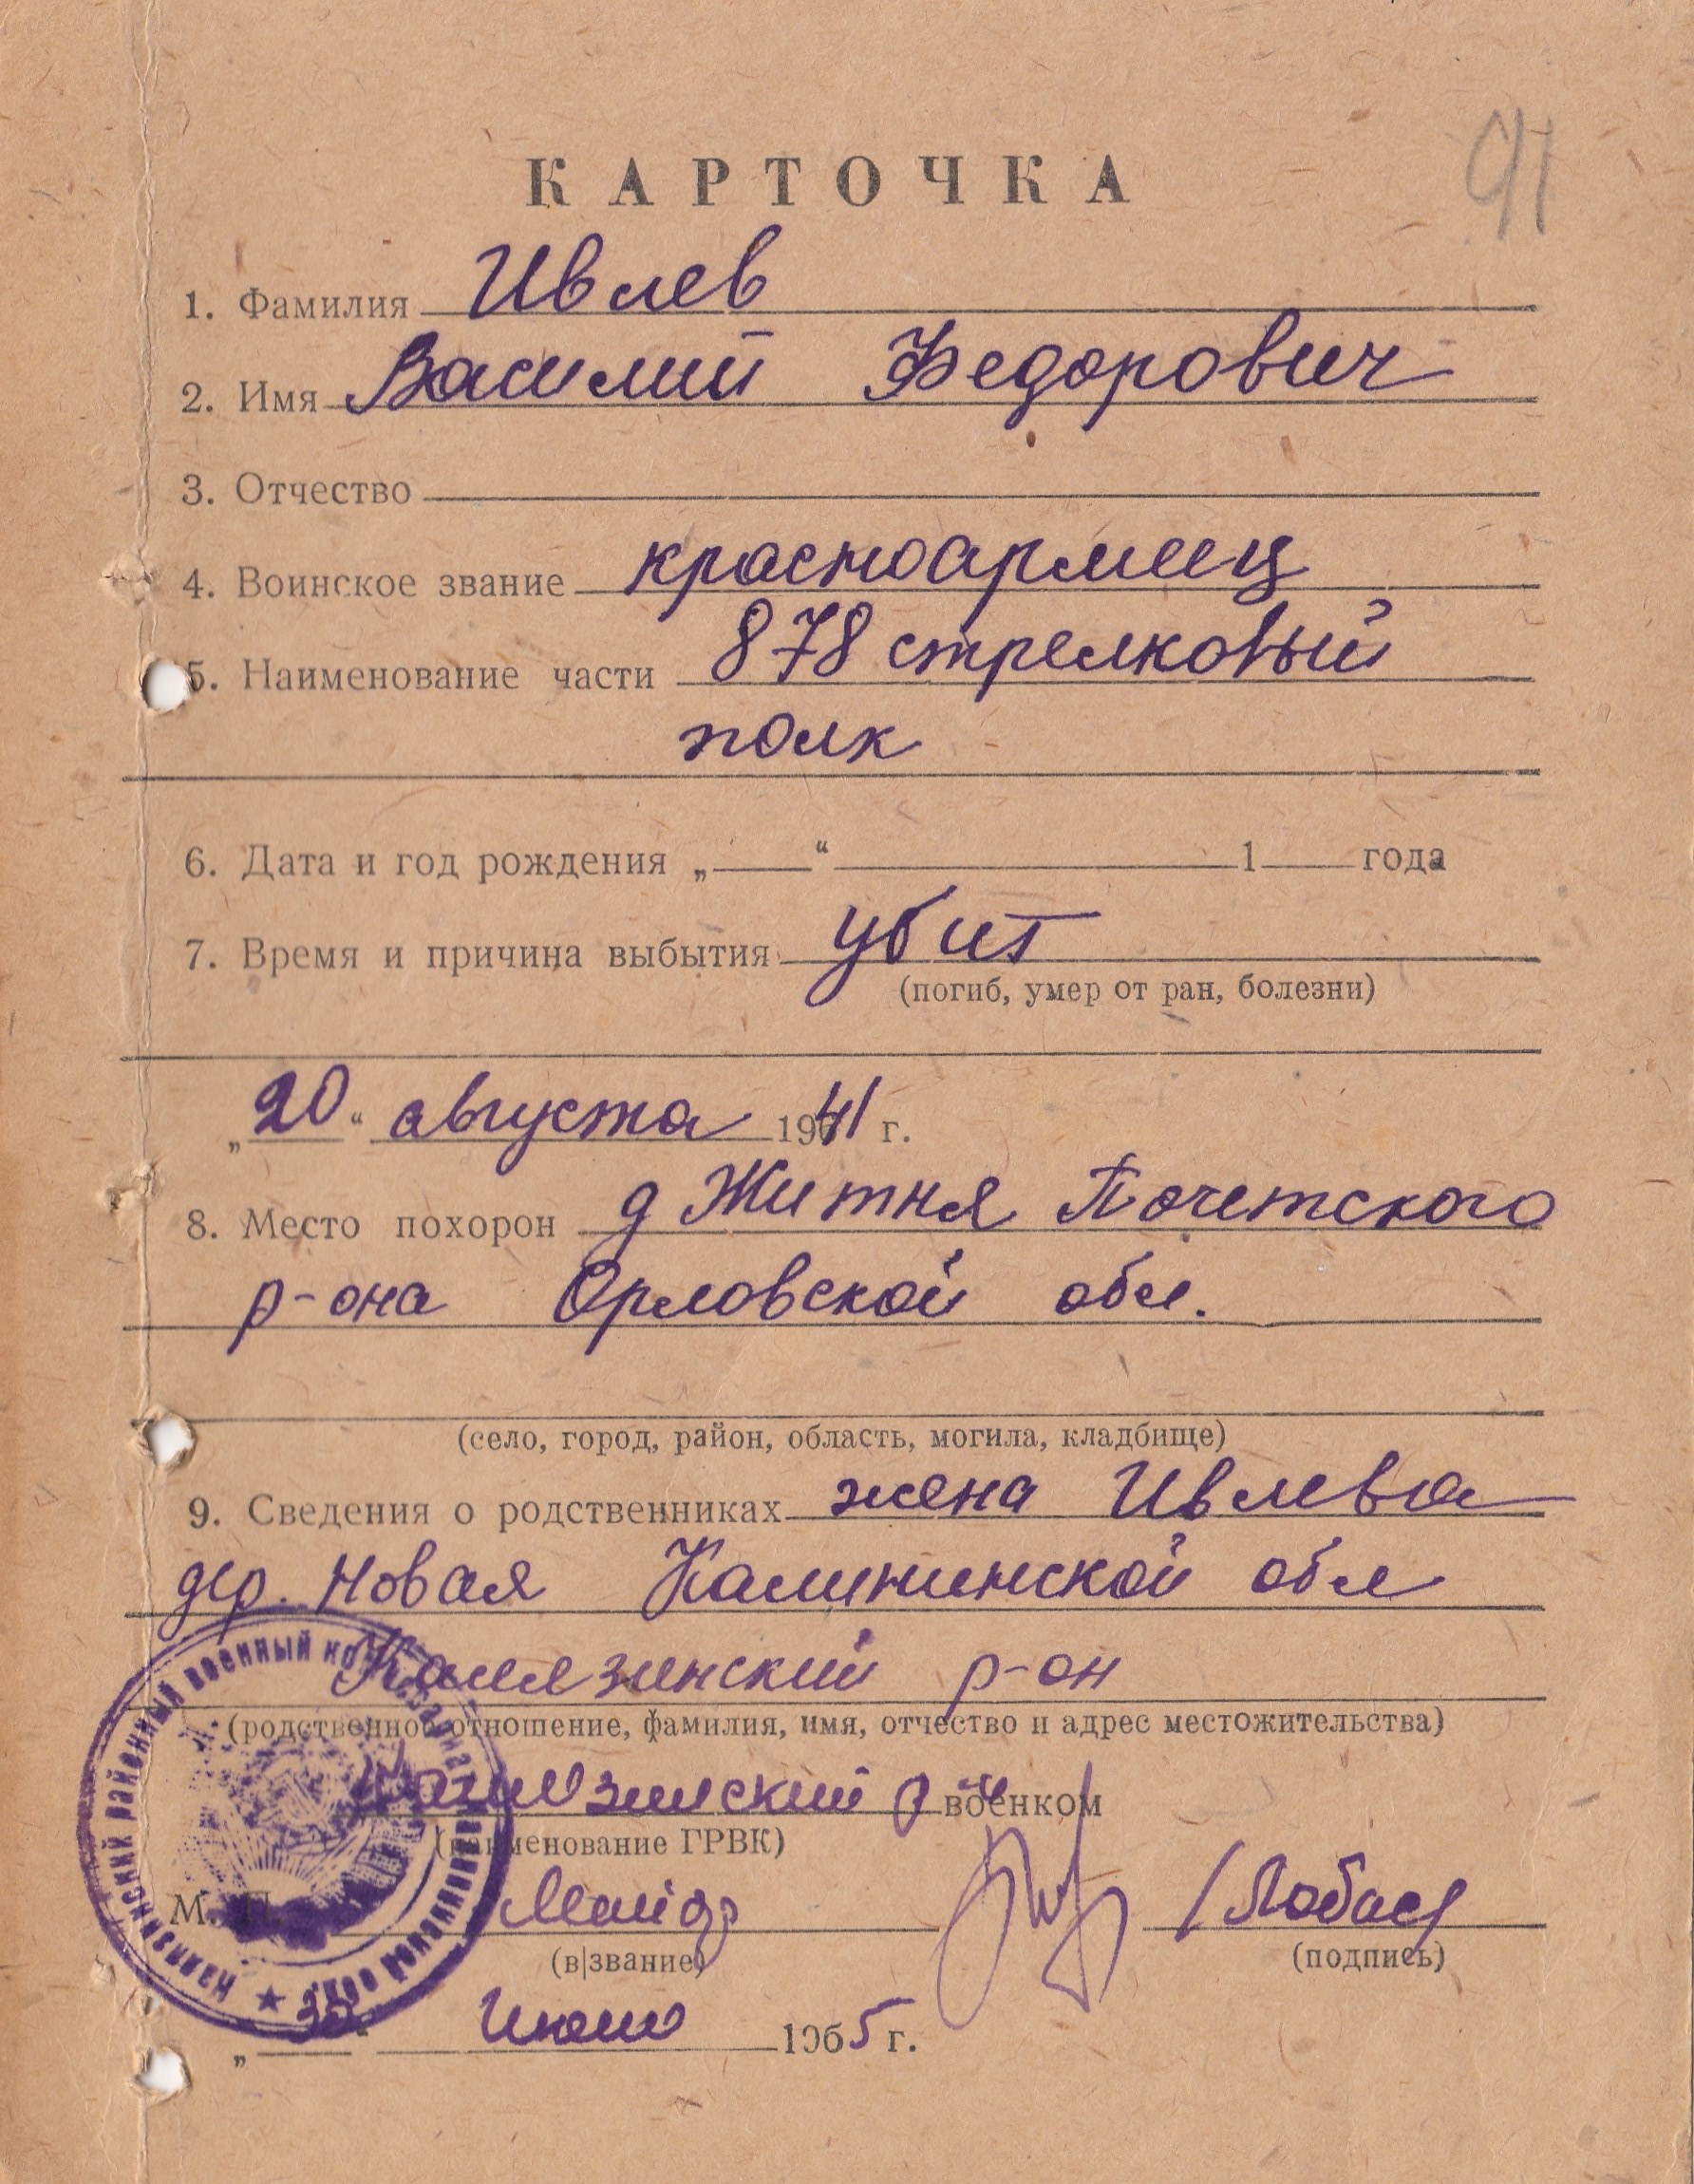 91
КАРТОЧКА
1. Фамилия Ивлев
2. Имя Василий Федорович
3. Отчество
4. Воинское звание красноармеец
5. Наименование части 878 стрелковый
полк
6. Дата и год рождения „ “ 1 года
7. Время и причина выбытия убит
(погиб, умер от ран, болезни)
„20“ августа 1941 г.
8. Место похорон д Житня Почетского
р-она Орловской обл.
(село, город, район, область, могила, кладбище)
9. Сведения о родственниках жена Ивлева
дер. Новая Калининской обл
Калязинский р-он
(родственное отношение, фамилия, имя, отчество и адрес местожительства)
Калязинский р военком
(наименование ГРВК)
М. П. /Лобас
(в|звание) (подпись)
„30“ Июня 1965 г.
Калязинский районный военный комиссариат Калининской обл.